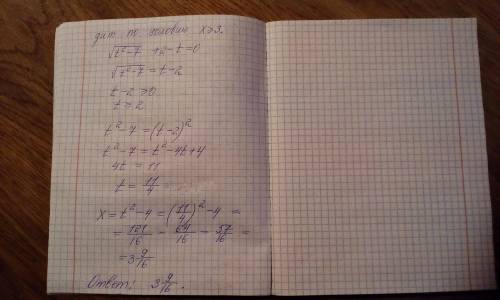 дит по условию x ≥ 3.
√(t²-7) + 2 - t = 0
√(t²-7) = t - 2
t - 2 ≥ 0
t ≥ 2
t² - 7 = (t - 2)²
t² - 7 = t² - 4t + 4
4t = 11
t = 11/4
x = t² - 4 = (11/4)² - 4 =
= 121/16 - 64/16 = 57/16 =
= 3 9/16
Ответ: 3 9/16.